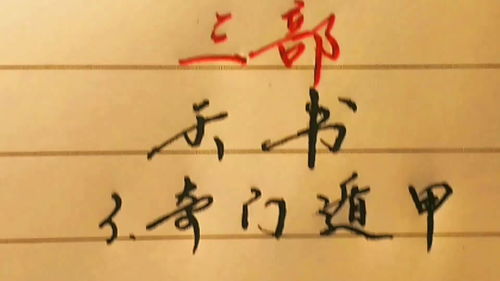 三部
天书
3.奇门遁甲